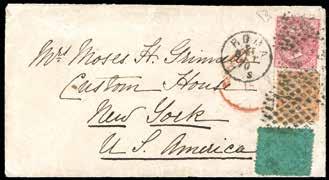 Mrs Moses H. Grinnell
Custom House
New York
U. S. America
ROMA